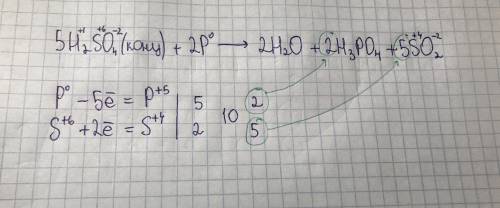 5H₂⁺¹S⁺⁶O₄⁻²(конц) + 2P⁰ → 2H₂O + 2H₃PO₄ + 5S⁺⁴O₂⁻²
P⁰ - 5ē = P⁺⁵ | 5 | 10 | 2
S⁺⁶ + 2ē = S⁺⁴ | 2 | 5